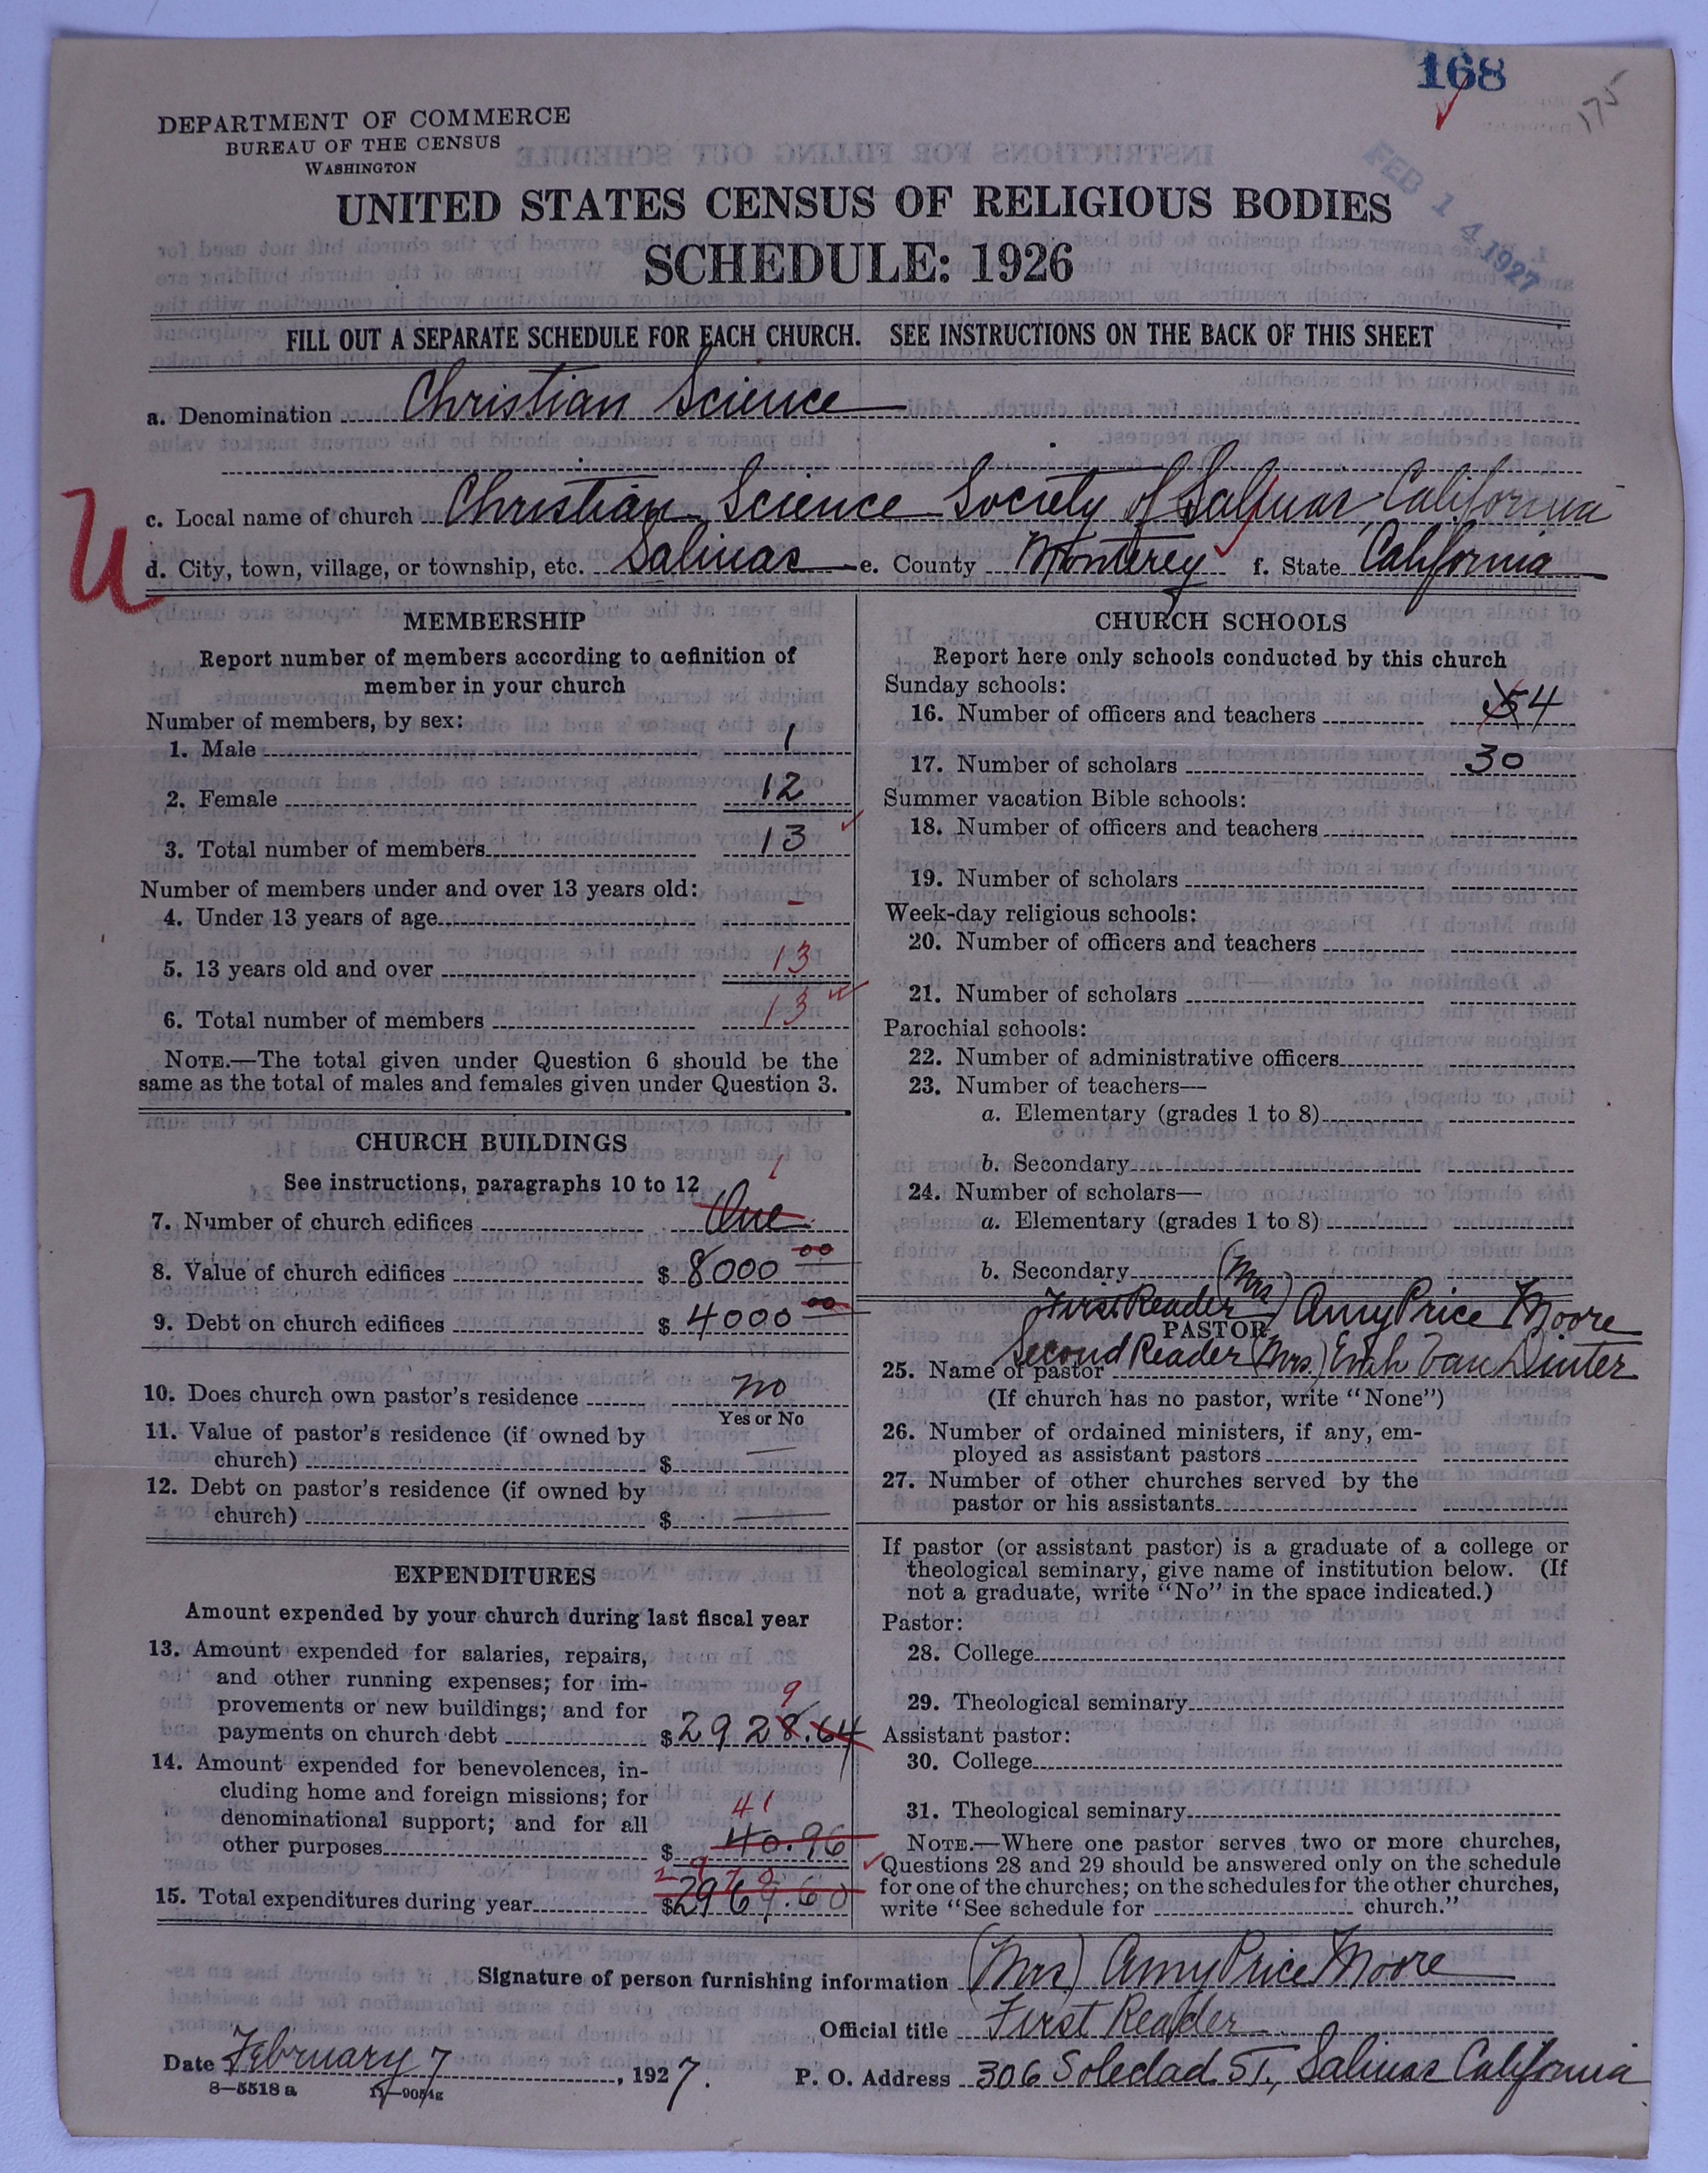 168
175
DEPARTMENT OF COMMERCE
BUREAU OF THE CENSUS
WASHINGTON
FEB 14 1927
UNITED STATES CENSUS OF RELIGIOUS BODIES
SCHEDULE: 1926
FILL OUT A SEPARATE SCHEDULE FOR EACH CHURCH. SEE INSTRUCTIONS ON THE BACK OF THIS SHEET
a. Denomination Christian Science
U
c. Local name of church Christian Science Society of Salinas California
d. City, town, village, or township, etc. Salinas e. County Monterey f. State California
MEMBERSHIP
Report number of members according to definition of
member in your church
Number of members, by sex:
1. Male 1
2. Female 12
3. Total number of members 13
Number of members under and over 13 years old:
4. Under 13 years of age -
5. 13 years old and over 13
6. Total number of members 13
NOTE.—The total given under Question 6 should be the
same as the total of males and females given under Question 3.
CHURCH BUILDINGS
See instructions, paragraphs 10 to 12
1
7. Number of church edifices One
8. Value of church edifices $ 8000 00
9. Debt on church edifices $ 4000 00
10. Does church own pastor's residence no
Yes or No
11. Value of pastor's residence (if owned by
church) $ —
12. Debt on pastor's residence (if owned by
church) $ —
EXPENDITURES
Amount expended by your church during last fiscal year
13. Amount expended for salaries, repairs,
and other running expenses; for im-
provements or new buildings; and for
9
payments on church debt $ 2928.64
14. Amount expended for benevolences, in-
cluding home and foreign missions; for
denominational support; and for all
41
other purposes $ 40.96
2970
15. Total expenditures during year $ 2969.60
CHURCH SCHOOLS
Report here only schools conducted by this church
Sunday schools:
16. Number of officers and teachers 5 4
17. Number of scholars 30
Summer vacation Bible schools:
18. Number of officers and teachers
19. Number of scholars
Week-day religious schools:
20. Number of officers and teachers
21. Number of scholars
Parochial schools:
22. Number of administrative officers
23. Number of teachers—
a. Elementary (grades 1 to 8)
b. Secondary
24. Number of scholars—
a. Elementary (grades 1 to 8)
b. Secondary
First Reader (Mrs) Amy Price Moore
PASTOR
Second Reader (Mrs.) Van Dinter
25. Name of pastor
(If church has no pastor, write "None")
26. Number of ordained ministers, if any, em-
ployed as assistant pastors
27. Number of other churches served by the
pastor or his assistants
If pastor (or assistant pastor) is a graduate of a college or
theological seminary, give name of institution below. (If
not a graduate, write "No" in the space indicated.)
Pastor:
28. College
29. Theological seminary
Assistant pastor:
30. College
31. Theological seminary
NOTE.—Where one pastor serves two or more churches,
Questions 28 and 29 should be answered only on the schedule
for one of the churches; on the schedules for the other churches,
write "See schedule for church."
Signature of person furnishing information (Mrs) Amy Price Moore
Official title First Reader
Date February 7, 1927. P. O. Address 306 Soledad St., Salinas California
8—5518 a 11—9051g